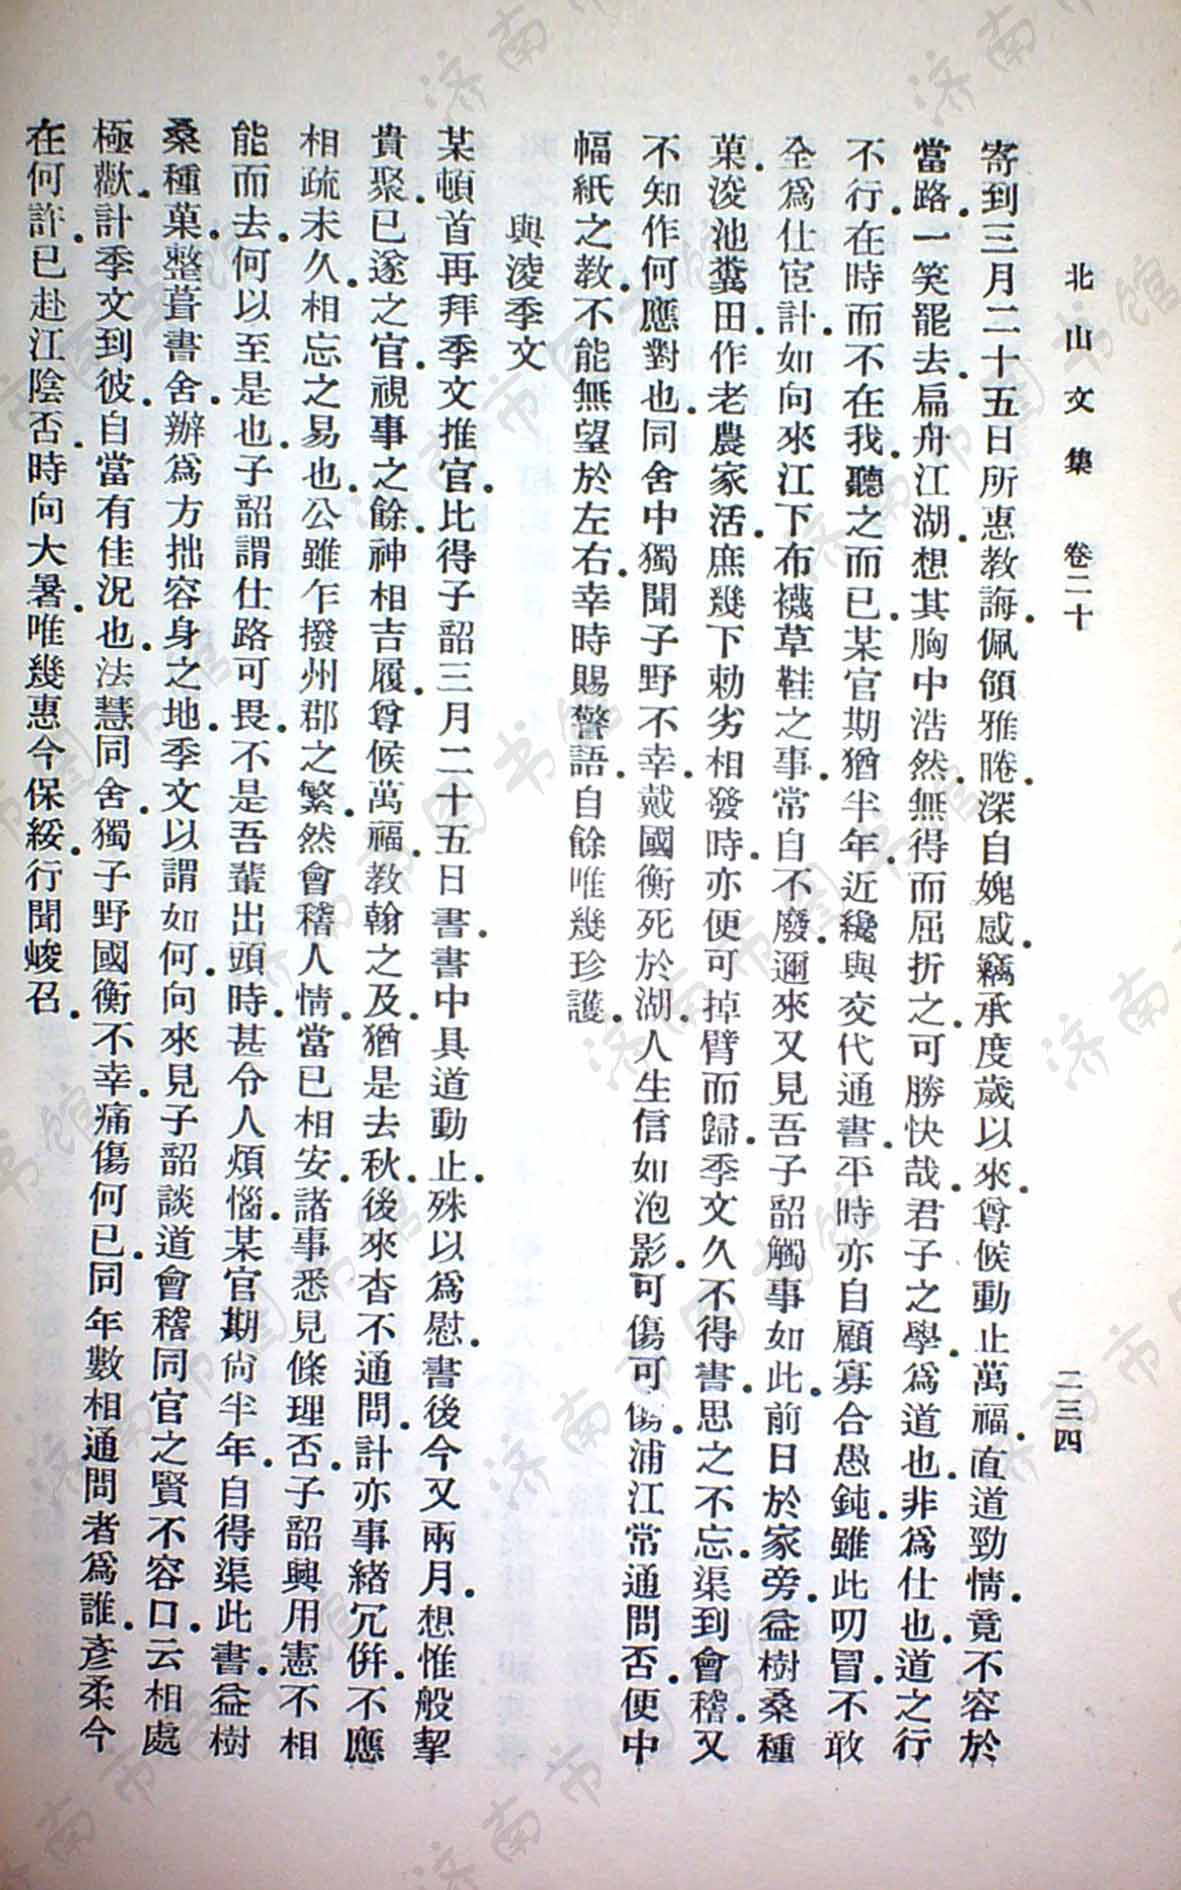 北山文集　卷二十　二三四
寄到三月二十五日所惠教誨．佩領雅睠．深自媿感．竊承度歲以來．尊候動止萬福．直道勁情．竟不容於
當路．一笑罷去．扁舟江湖．想其胸中浩然．無得而屈折之．可勝快哉．君子之學．爲道也．非爲仕也．道之行
不行．在時而不在我．聽之而已．某官期猶半年．近纔與交代通書．平時亦自顧寡合愚鈍．雖此叨冒．不敢
全爲仕宦計．如向來江下布襪草鞋之事．常自不廢．邇來又見吾子韶觸事如此．前日於家旁．益樹桑種
菓．浚池糞田．作老農家活．庶幾下勑劣相發時．亦便可掉臂而歸．季文久不得書．思之不忘．渠到會稽．又
不知作何應對也．同舍中獨聞子野不幸．戴國衡死於湖．人生信如泡影．可傷可傷．浦江常通問否．便中
幅紙之教．不能無望於左右．幸時賜警語．自餘唯幾珍護．
與淩季文
某頓首再拜季文推官．比得子韶三月二十五日書．書中具道動止．殊以爲慰．書後今又兩月．想惟般挈
貴聚．已遂之官．視事之餘．神相吉履．尊候萬福．教翰之及．猶是去秋．後來杳不通問．計亦事緒冗併．不應
相疏未久．相忘之易也．公雖乍撥州郡之繁．然會稽人情．當已相安．諸事悉見條理否．子韶興用憲不相
能而去．何以至是也．子韶謂仕路可畏．不是吾輩出頭時．甚令人煩惱．某官期尙半年．自得渠此書．益樹
桑種菓．整葺書舍．辦爲方拙容身之地．季文以謂如何．向來見子韶談道會稽同官之賢不容口．云相處
極歡．計季文到彼．自當有佳況也．法慧同舍．獨子野國衡不幸．痛傷何已．同年數相通問者爲誰．彥柔今
在何許．已赴江陰否．時向大暑．唯幾惠令保綏．行聞峻召．